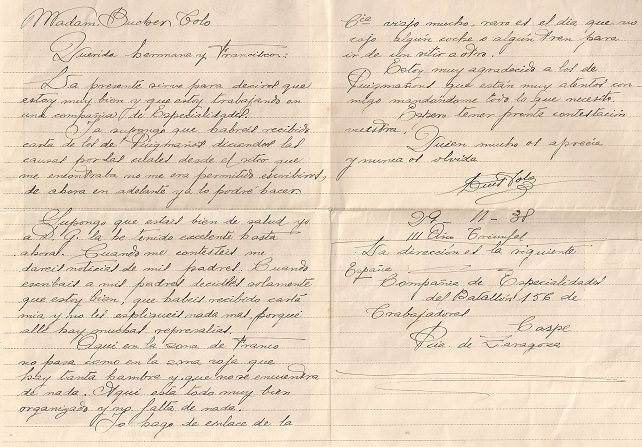 Madam. Buober Coló
Querida hermana y Francisco:
La presente sirve para deciros que
estoy muy bien y que estoy trabajando en
una compañia de Especialidades.
Ya supongo que habreis recibido
carta de los de Puigmañós diciendos las
causas por las cuales desde el sitio que
me encontraba no me era permitido escribiros,
de ahora en adelante ya lo podré hacer.
Supongo que estais bien de salud yo
a D. G. la he tenido excelente hasta
ahora. Cuando me contesteis me
dareis noticias de mis padres. Cuando
escribais a mis padres decidles solamente
que estoy bien, que habeis recibido carta
mia y no les expliqueis nada mas porque
alli hay muchas represalias.
Aqui en la zona de Franco
no pasa como en la zona roja que
hay tanta hambre y que no se encuentra
de nada. Aqui esta todo muy bien
organizado y no falta de nada.
Yo hago de enlace de la
Cia viajo mucho, raro es el dia que no
cojo algún coche o algún tren para
ir de un sitio a otro.
Estoy muy agradecido a los de
Puigmañós que están muy atentos con
migo mandandome todo lo que necesito.
Espero tener pronto contestación
vuestra.
Quien mucho os aprecia
y nunca os olvida
29 - 11 - 38
III Año Triunfal
La dirección es la siguiente
España
Compañia de Especialidades
del Batallón 156 de
Trabajadores
Caspe
Pcia. de Zaragoza